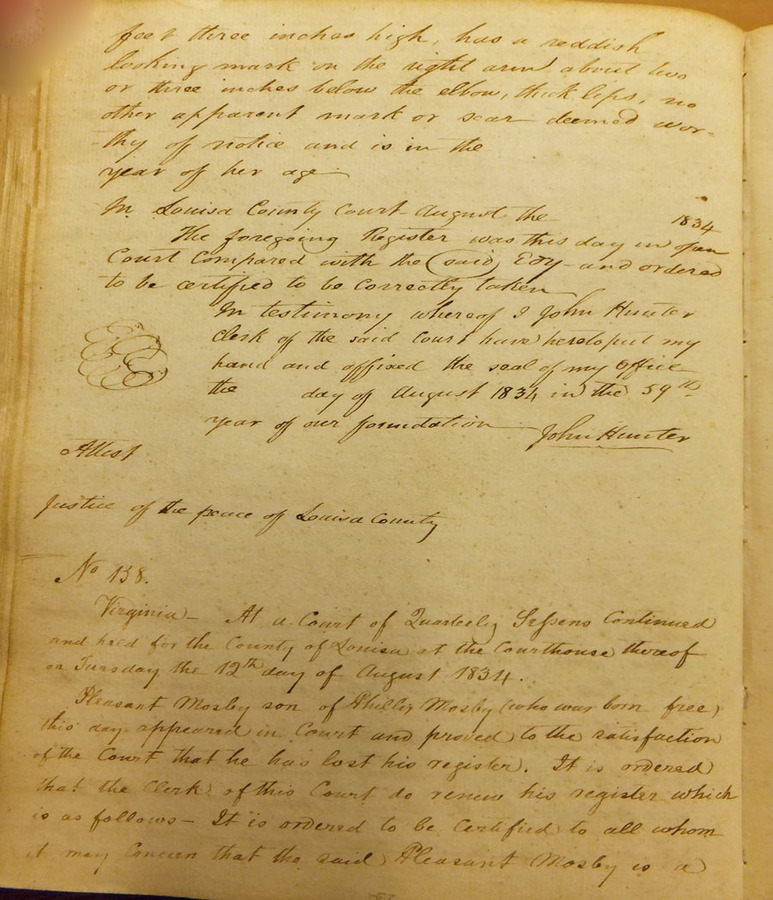 feet three inches high, has a reddish
looking mark on the right arm about two
or three inches below the elbow, thick lips, no
other apparent mark or scar deemed wor-
-thy of notice and is in the
year of her age
In Louisa County Court August the 1834
The foregoing Register was this day in open
Court compared with the (said) Edy and ordered
to be certified to be correctly taken
In testimony whereof I John Hunter
Clerk of the said Court have hereto put my
hand and affixed the seal of my Office
the day of August 1834 in the 59th
year of our foundation John Hunter
Attest
Justice of the peace of Louisa County
No 138.
Virginia - At a Court of Quarterly Sessions Continued
and held for the County of Louisa at the Courthouse thereof
on Tuesday the 12th day of August 1834.
Pleasant Mosby son of Mosby (who was born free)
this day appeared in Court and proved to the satisfaction
of the Court that he has lost his register. It is ordered
that the Clerk of this Court do renew his register which
is as follows - It is ordered to be Certified to all whom
it may Concern that the said Pleasant Mosby is a